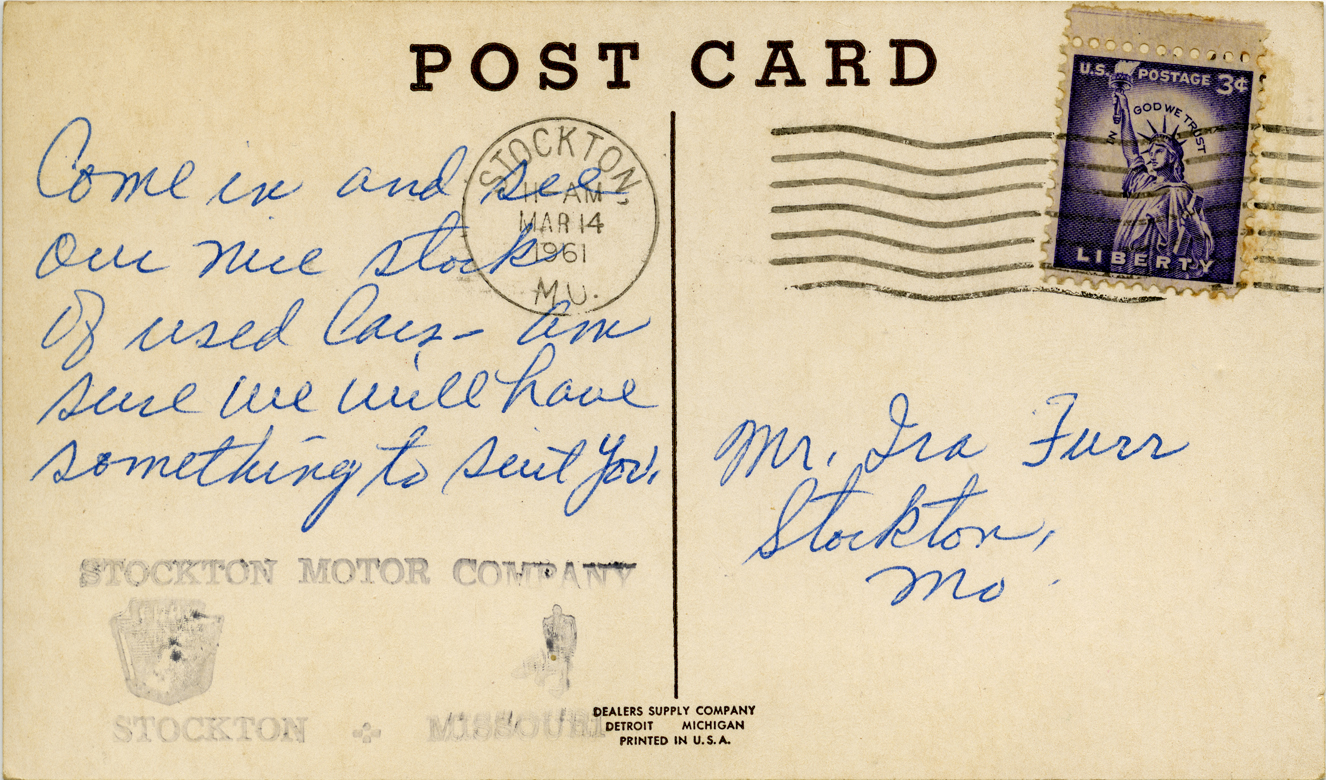 POST CARD
U.S. POSTAGE 3¢
IN GOD WE TRUST
LIBERTY
STOCKTON,
11 AM
MAR 14
1961
MO.
Come in and see
our nice stock
of used Cars - am
sure we will have
something to suit you.
Mr. Ira Furr
Stockton,
Mo.
STOCKTON MOTOR COMPANY
STOCKTON + MISSOURI
DEALERS SUPPLY COMPANY
DETROIT MICHIGAN
PRINTED IN U.S.A.